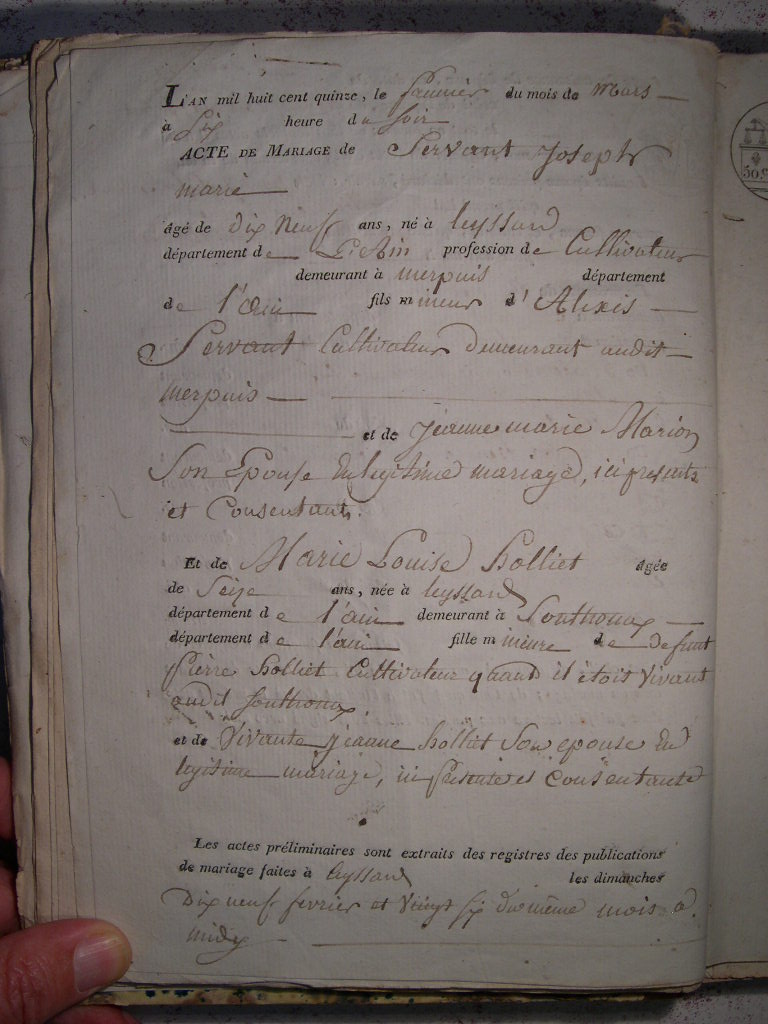 L'AN mil huit cent quinze, le du mois de Mars
à Six heure du soir
ACTE DE MARIAGE de Servant Joseph
marie
âgé de dix neuf ans, né à leyssard
département de L'Ain profession de Cultivateur
demeurant à merpuis département
de l'ain fils mineur d'Alexis
Servant Cultivateur demeurant audit
merpuis
et de jeanne marie Marion
Son Epouse En legitime mariage, ici presents
et Consentants.
Et de Marie Louise holliet âgée
de Seize ans, née à leyssard
département de l'ain demeurant à Southonax
département de l'ain fille mineure de defunt
pierre holliet Cultivateur quand il étoit Vivant
audit Southonax.
et de Vivante jeanne holliet Son epouse En
legitime mariage, ici presente et Consentante
Les actes préliminaires sont extraits des registres des publications
de mariage faites à leyssard les dimanches
Dix neuf fevrier et Vingt six du même mois a
midy
50